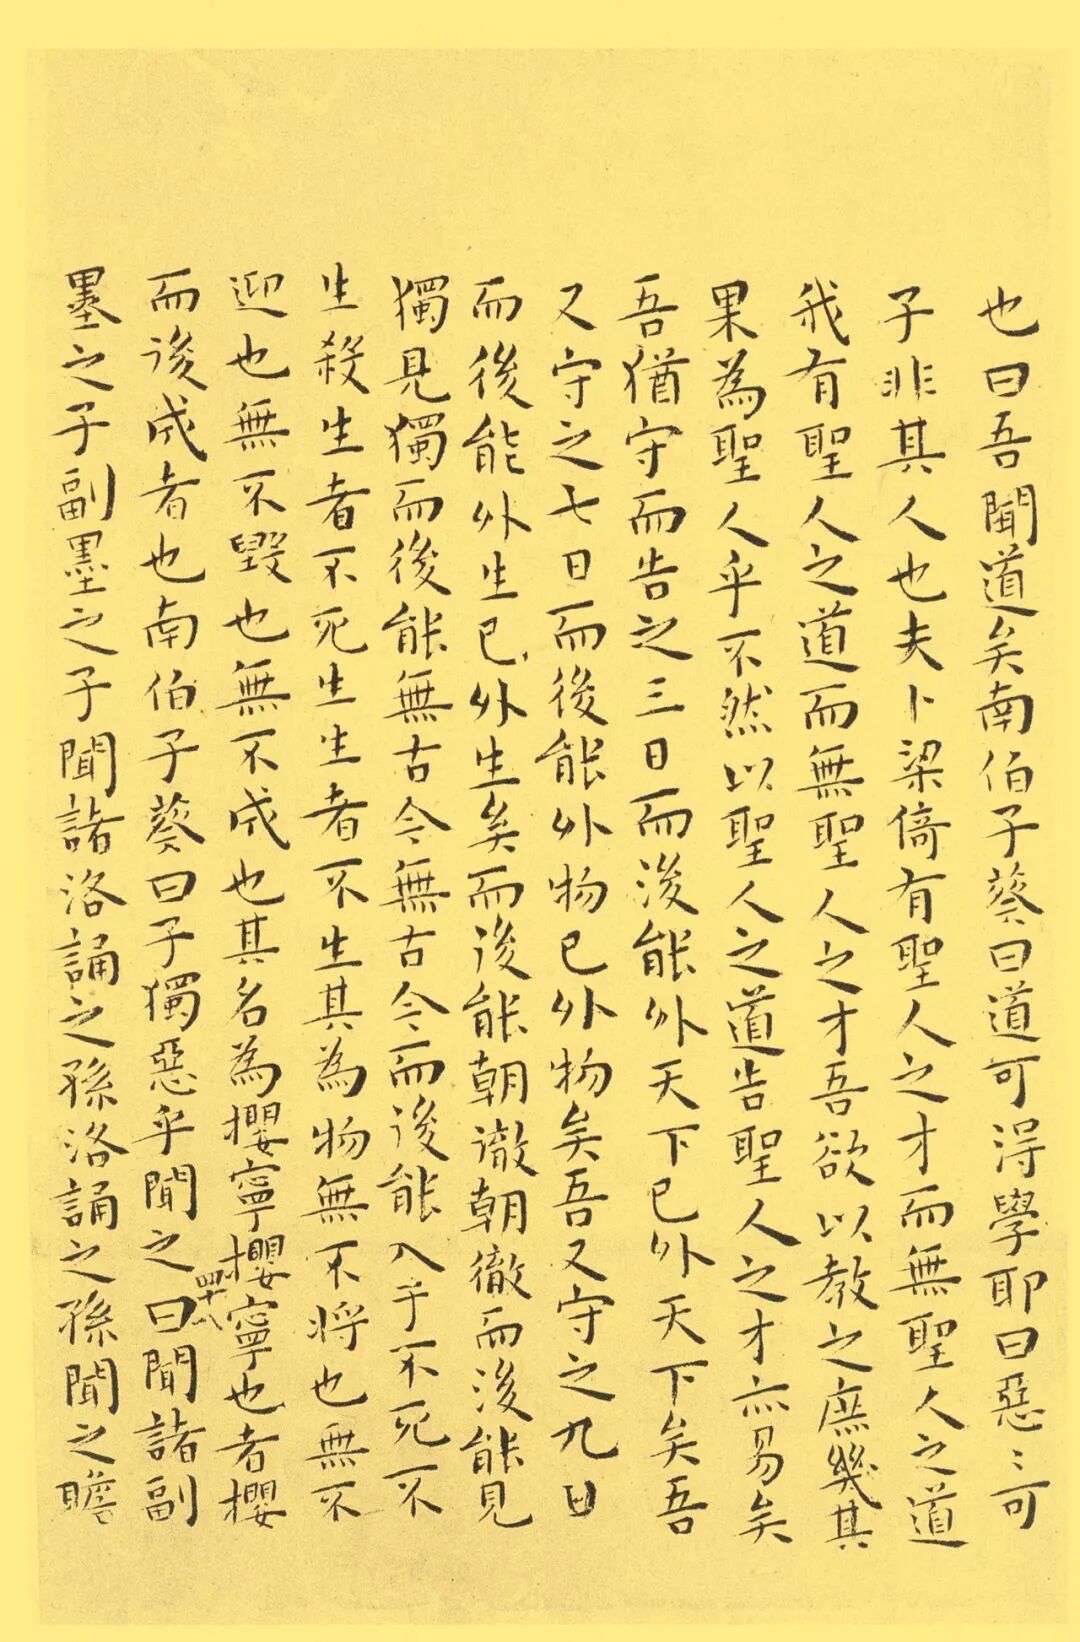 也曰吾聞道矣南伯子葵曰道可淂學耶曰惡〻可
子非其人也夫卜梁倚有聖人之才而無聖人之道
我有聖人之道而無聖人之才吾欲以教之庶幾其
果為聖人乎不然以聖人之道告聖人之才亦易矣
吾猶守而告之三日而後能外天下已外天下矣吾
又守之七日而後能外物已外物矣吾又守之九日
而後能外生已外生矣而後能朝徹朝徹而後能見
獨見獨而後能無古今無古今而後能入于不死不
生殺生者不死生生者不生其為物無不将也無不
迎也無不毀也無不成也其名為攖寧攖寧也者攖
而後成者也南伯子葵曰子獨惡乎聞之曰聞諸副
墨之子副墨之子聞諸洛誦之孫洛誦之孫聞之瞻
四十八